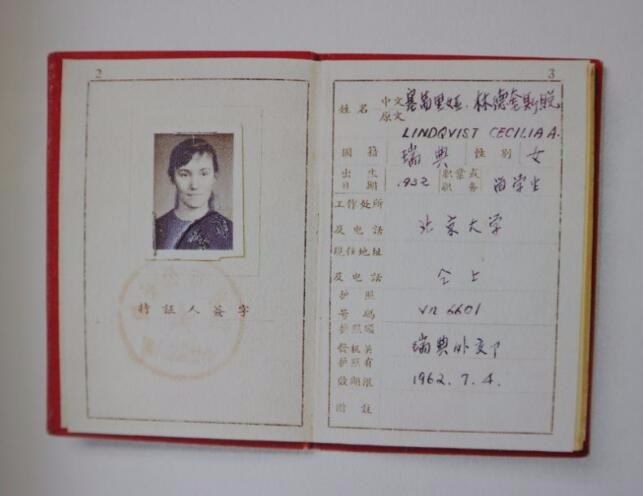 2
持証人簽字
3
姓名 中文 塞茜里娅.林德奎斯脱
原文 LINDQVIST CECILIA A.
国籍 瑞典 性别 女
出生日期 1932 职業或职务 留学生
工作处所及电话 北京大学
現住地址及电话 仝上
护照号码 VR 6601
护照頒發机关 瑞典外交部
护照有效期限 1962.7.4.
附註